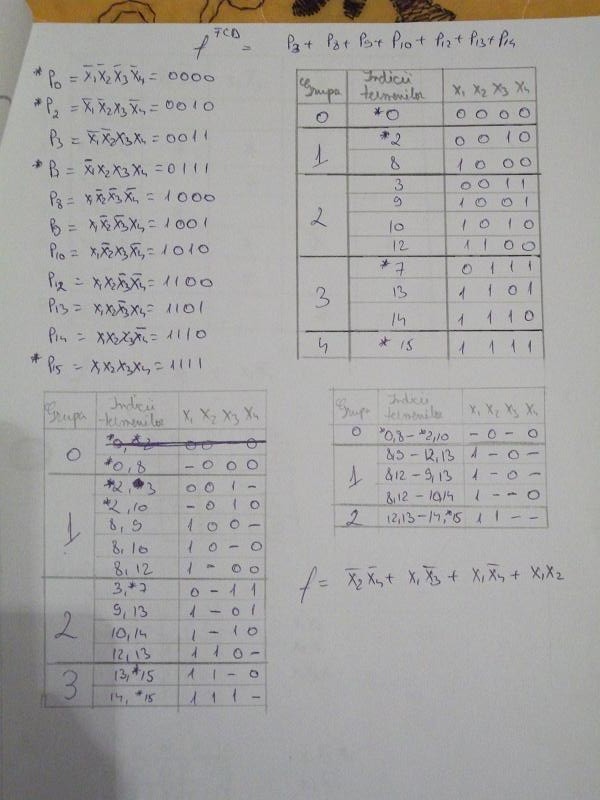 f^TCD = P3 + P8 + P9 + P10 + P12 + P13 + P14
*P0 = x̅1x̅2x̅3x̅4 = 0000
*P2 = x̅1x̅2x3x̅4 = 0010
P3 = x̅1x̅2x3x4 = 0011
*P7 = x̅1x2x3x4 = 0111
P8 = x1x̅2x̅3x̅4 = 1000
P9 = x1x̅2x̅3x4 = 1001
P10 = x1x̅2x3x̅4 = 1010
P12 = x1x2x̅3x̅4 = 1100
P13 = x1x2x̅3x4 = 1101
P14 = x1x2x3x̅4 = 1110
*P15 = x1x2x3x4 = 1111
Grupa Indicii termenilor x1 x2 x3 x4
0 *0 0 0 0 0
1 *2 0 0 1 0
8 1 0 0 0
2 3 0 0 1 1
9 1 0 0 1
10 1 0 1 0
12 1 1 0 0
3 *7 0 1 1 1
13 1 1 0 1
14 1 1 1 0
4 *15 1 1 1 1
Grupa Indicii termenilor x1 x2 x3 x4
0 *0, *2 0 0 0
*0, 8 - 0 0 0
1 *2, 3 0 0 1 -
*2, 10 - 0 1 0
8, 9 1 0 0 -
8, 10 1 0 - 0
8, 12 1 - 0 0
2 3, *7 0 - 1 1
9, 13 1 - 0 1
10, 14 1 - 1 0
12, 13 1 1 0 -
3 13, *15 1 1 - 0
14, *15 1 1 1 -
Grupa Indicii termenilor x1 x2 x3 x4
0 *0,8 - *2,10 - 0 - 0
1 8,9 - 12,13 1 - 0 -
8,12 - 9,13 1 - 0 -
8,12 - 10,14 1 - - 0
2 12,13 - 14,*15 1 1 - -
f = x̅2x̅4 + x1x̅3 + x1x̅4 + x1x2